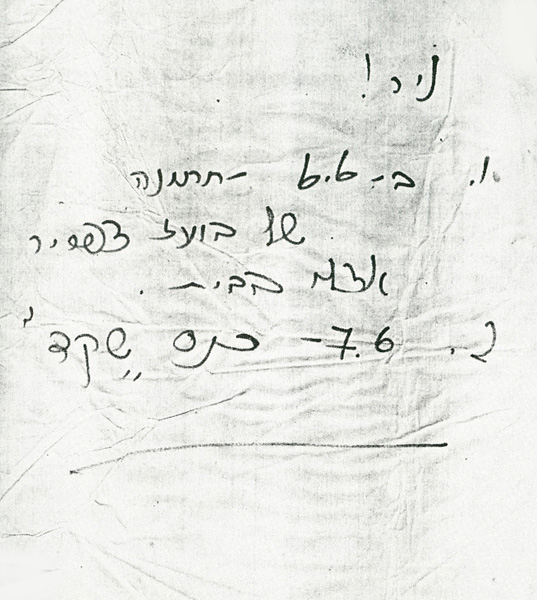 ניר!
1. ב- 6.6 - חתונה
של בועז צפריר
אצלי בבית.
2. 7.6 - כנס "שקד"